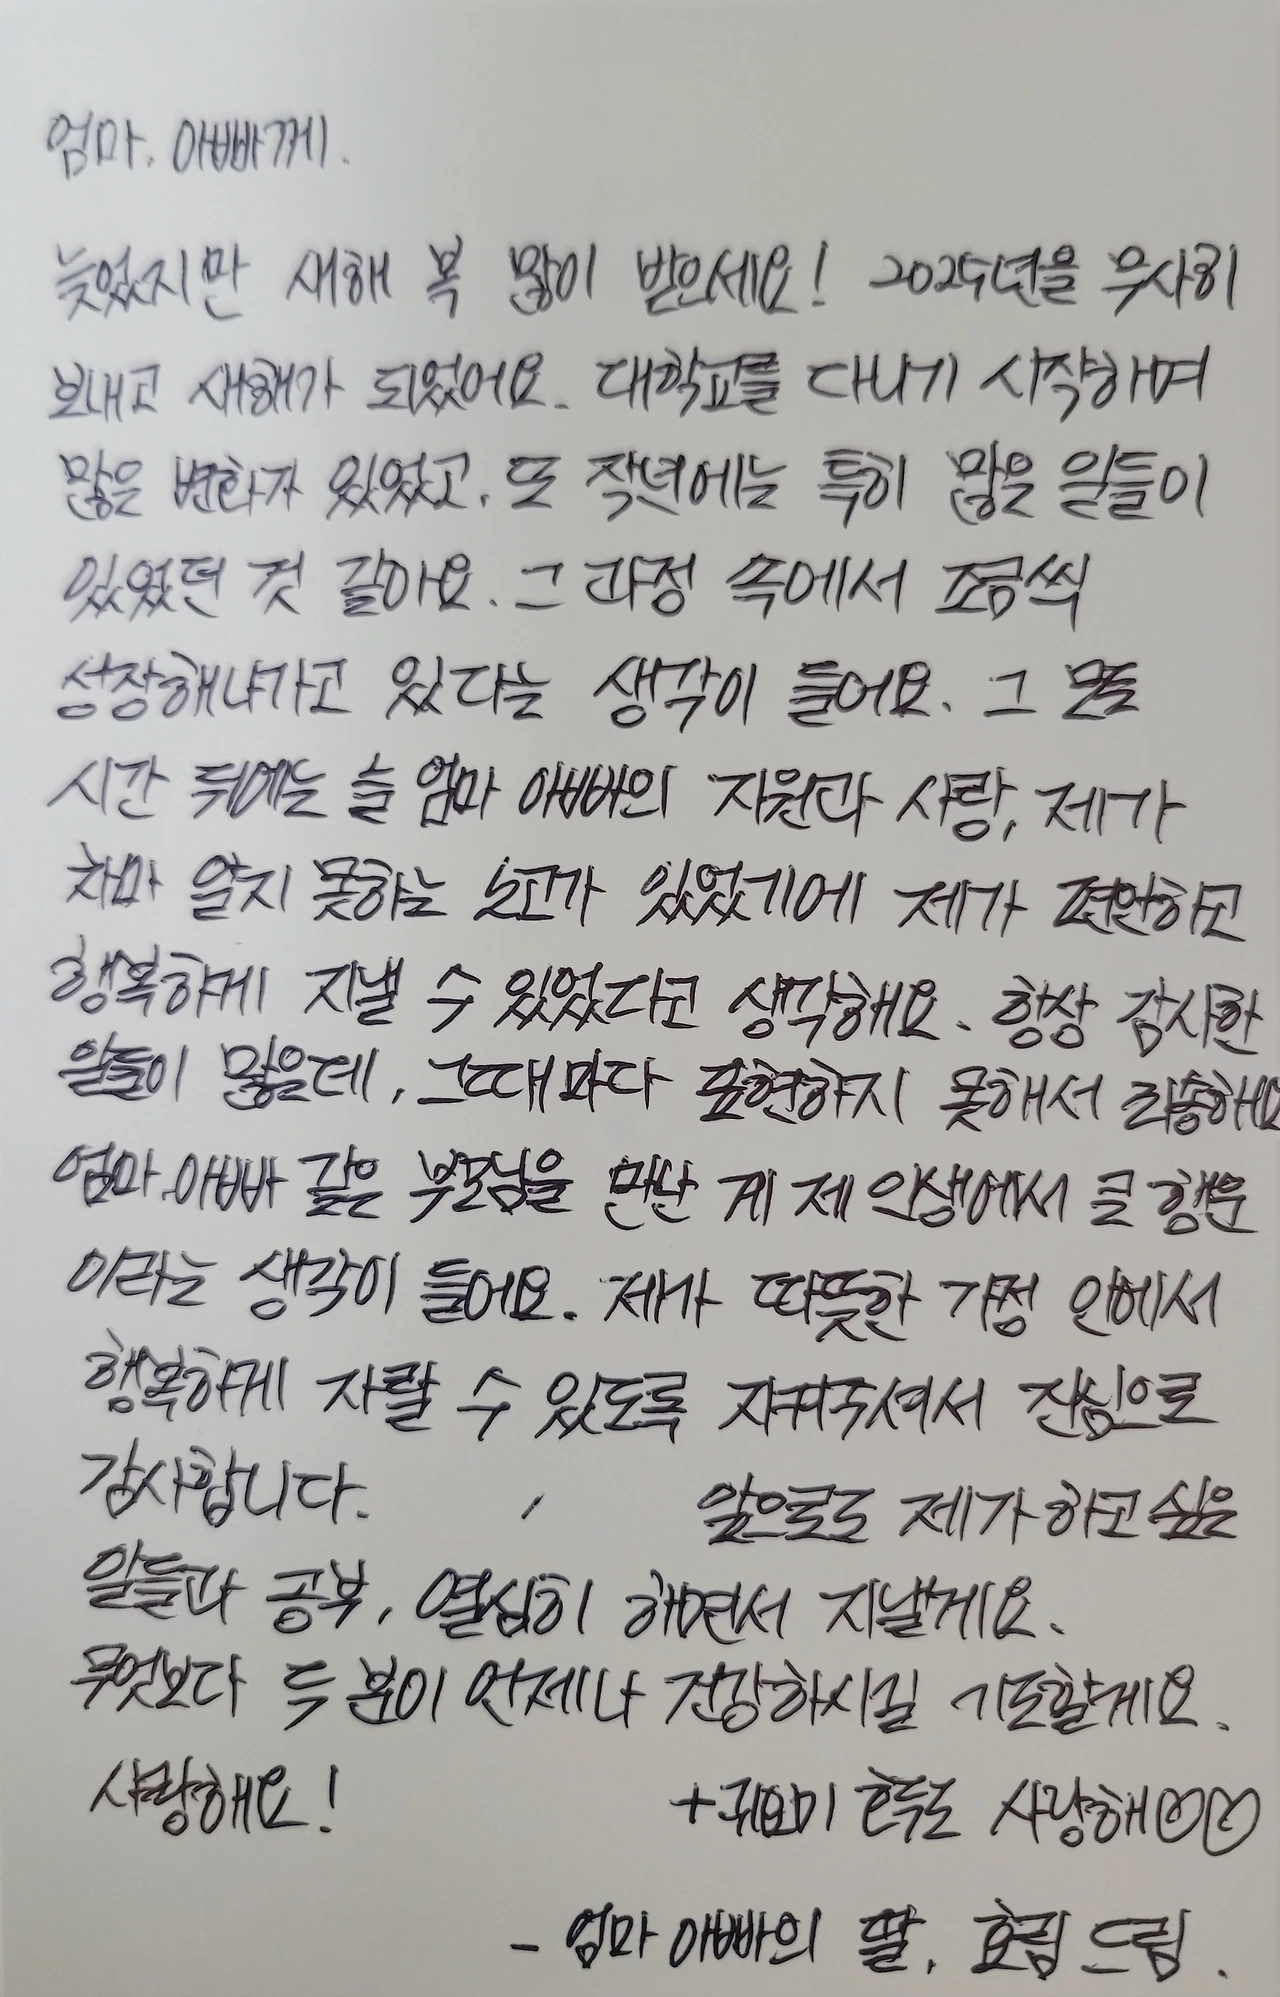 엄마, 아빠께.
늦었지만 새해 복 많이 받으세요! 2025년을 무사히
보내고 새해가 되었어요. 대학교를 다니기 시작하며
많은 변화가 있었고, 또 작년에는 특히 많은 일들이
있었던 것 같아요. 그 과정 속에서 조금씩
성장해나가고 있다는 생각이 들어요. 그 모든
시간 뒤에는 늘 엄마 아빠의 지원과 사랑, 제가
차마 알지 못하는 노고가 있었기에 제가 편안하고
행복하게 지낼 수 있었다고 생각해요. 항상 감사한
일들이 많은데, 그때마다 표현하지 못해서 죄송해요
엄마, 아빠 같은 부모님을 만난 게 제 인생에서 큰 행운
이라는 생각이 들어요. 제가 따뜻한 가정 안에서
행복하게 자랄 수 있도록 지켜주셔서 진심으로
감사합니다. 앞으로도 제가 하고 싶은
일들과 공부, 열심히 하면서 지낼게요.
무엇보다 두 분이 언제나 건강하시길 기도할게요.
사랑해요! +귀요미 호두도 사랑해♡♡
- 엄마 아빠의 딸, 효림 드림.